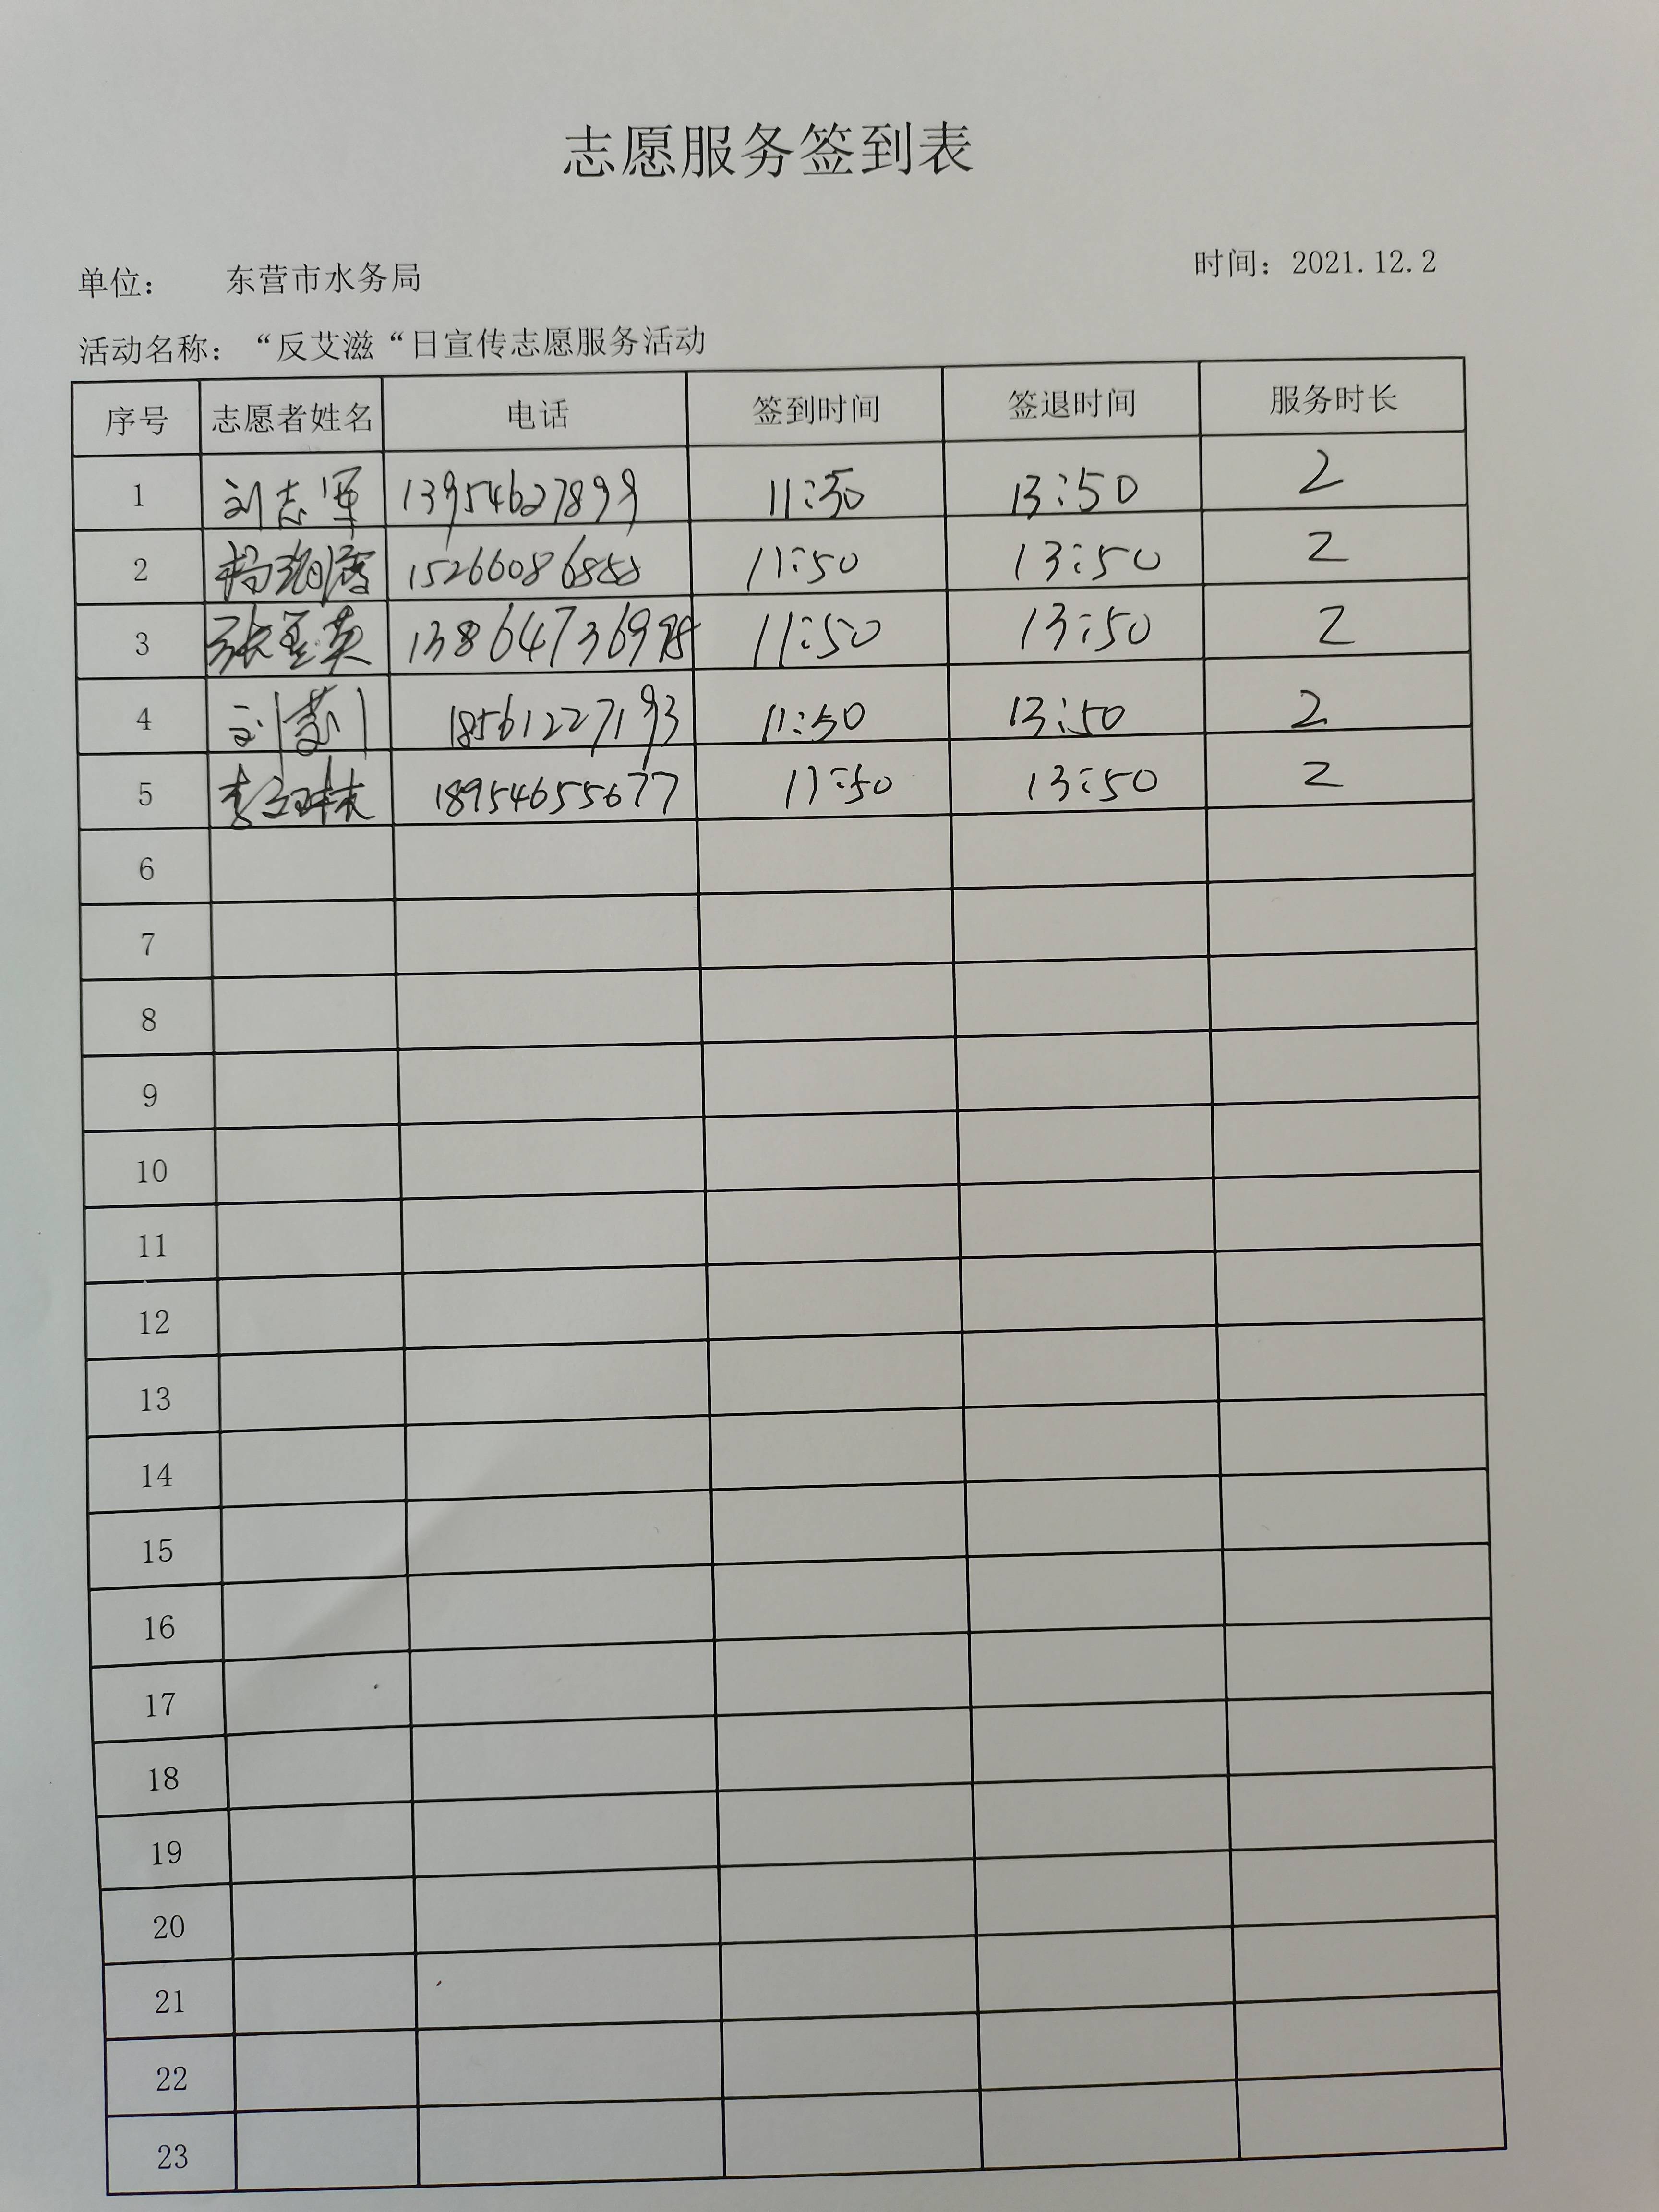 志愿服务签到表
单位： 东营市水务局 时间：2021.12.2
活动名称：“反艾滋“日宣传志愿服务活动
序号 志愿者姓名 电话 签到时间 签退时间 服务时长
1 刘志军 13954627899 11:50 13:50 2
2 15266086888 11:50 13:50 2
3 张圣英 13864736998 11:50 13:50 2
4 18561227193 11:50 13:50 2
5 18954655677 11:50 13:50 2
6
7
8
9
10
11
12
13
14
15
16
17
18
19
20
21
22
23